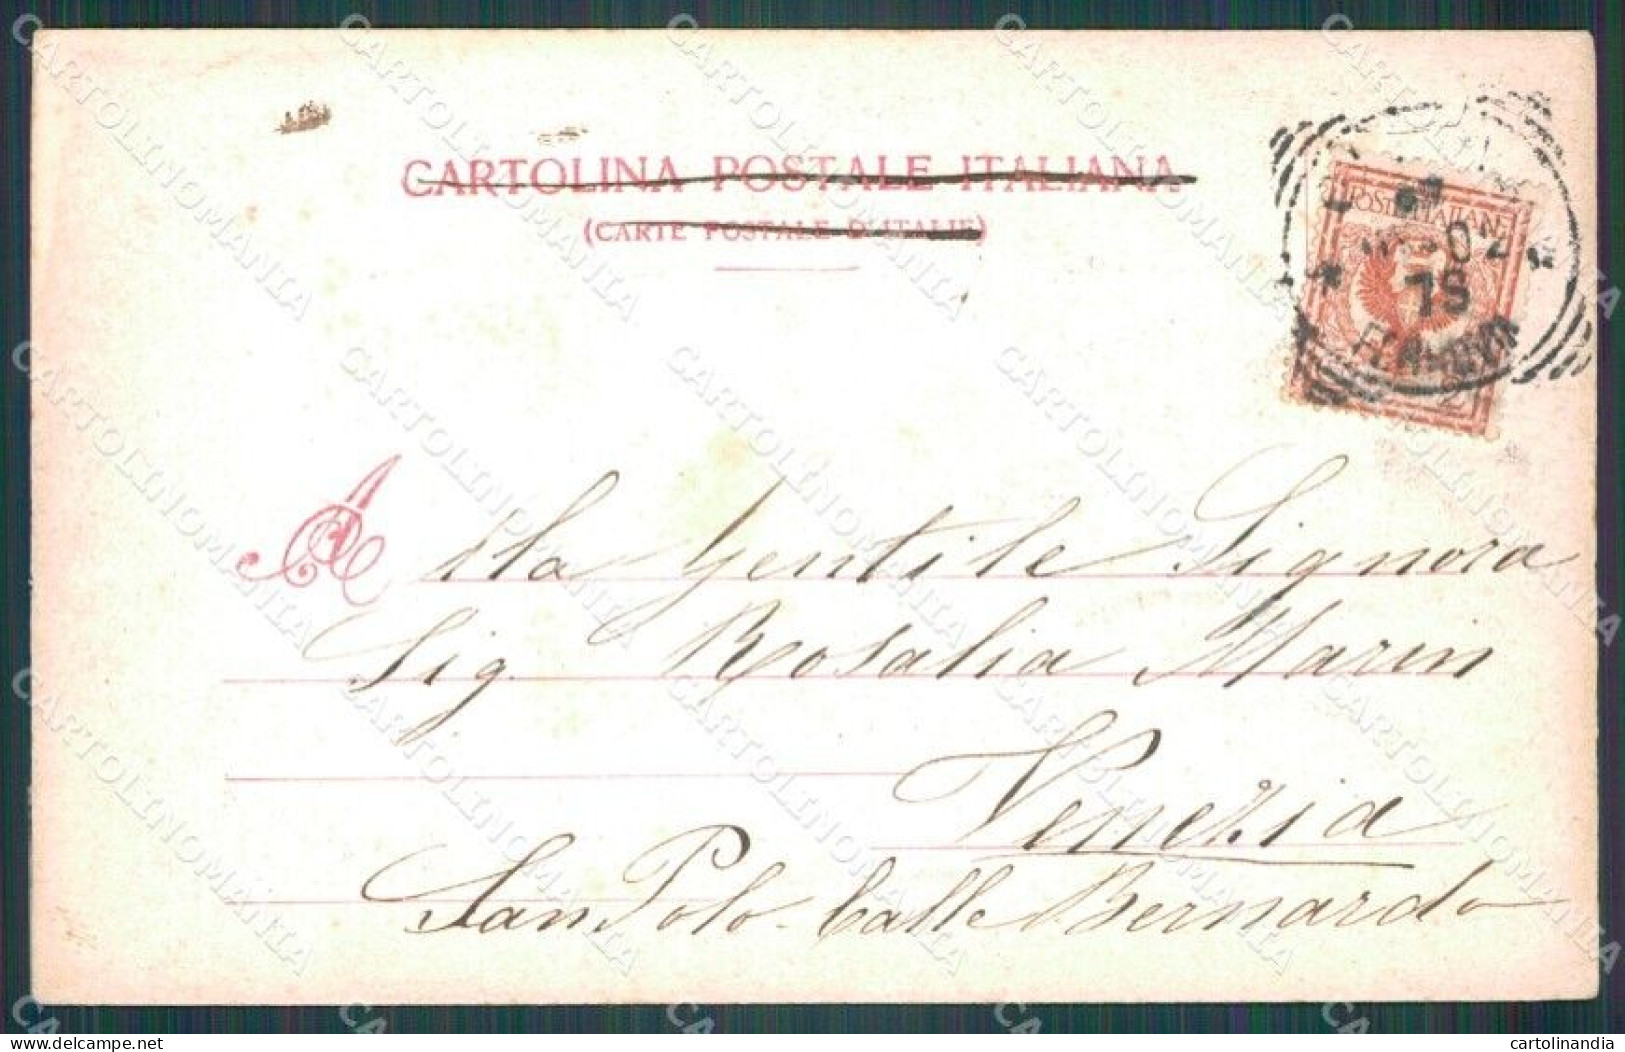 CARTOLINA POSTALE ITALIANA
(CARTE POSTALE D'ITALIE)
POSTE ITALIANE
02
7S
FERROVIA
2
Alla Gentile Signora
Sig. Rosalia Marin
Venezia
San Polo. Calle Bernardo
CARTOLINOMANIA
delcampe.net
cartolinandia